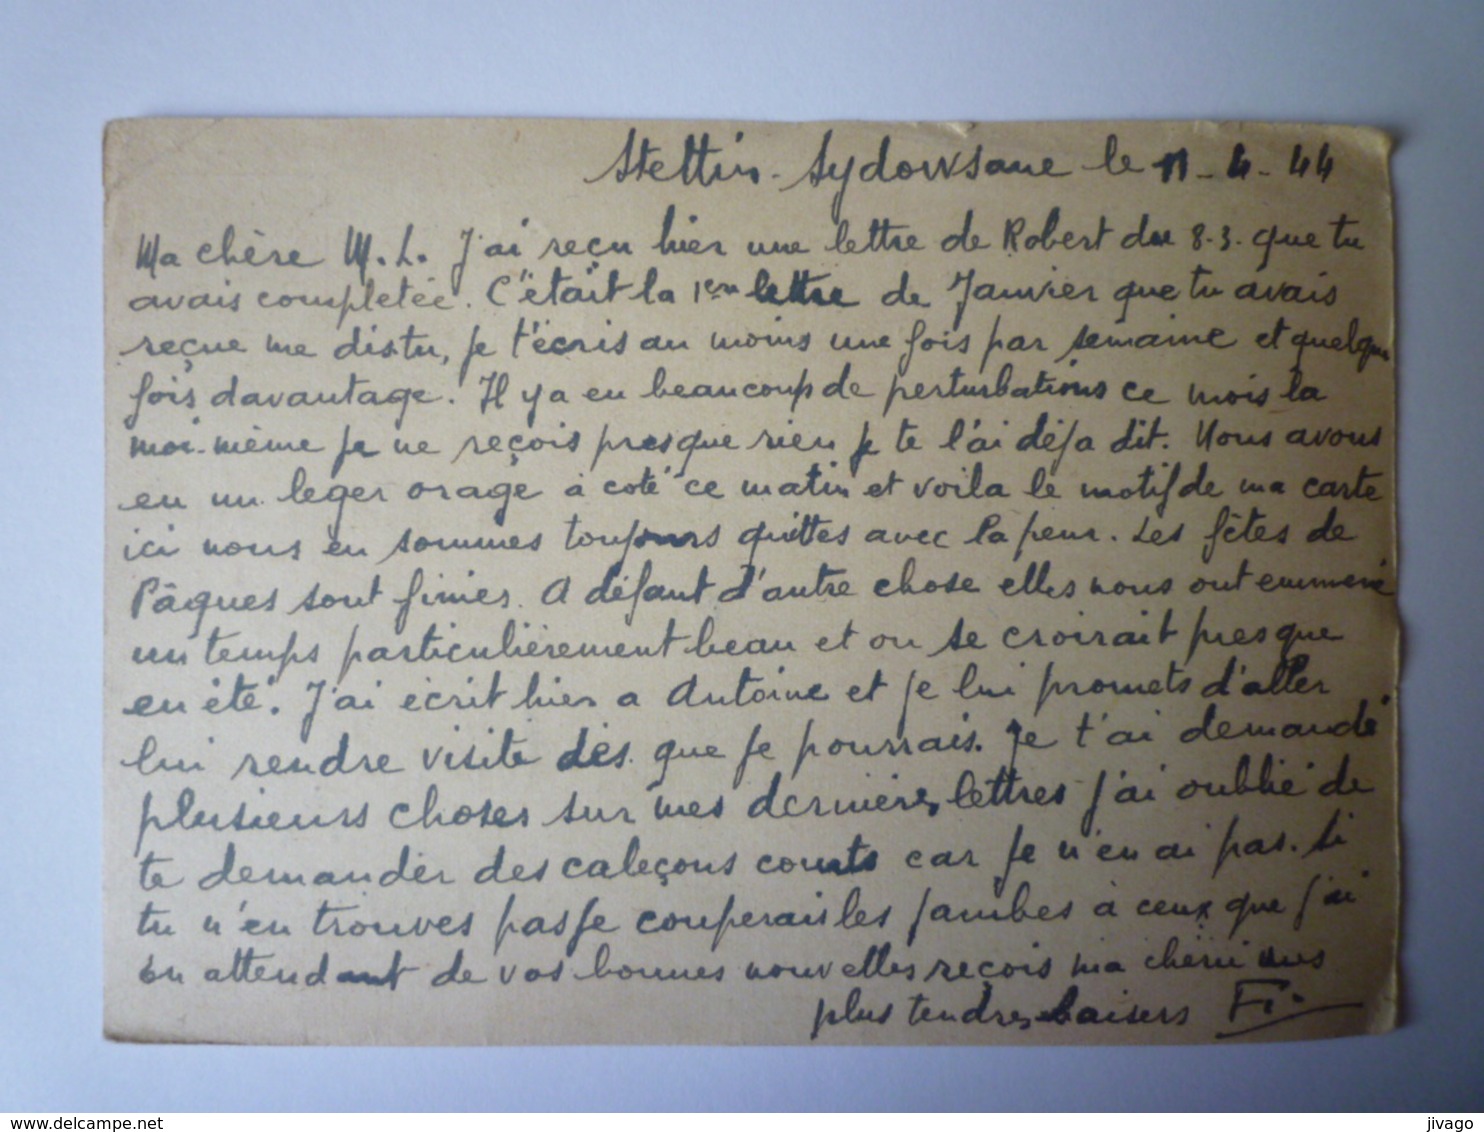 Stettin-Sydowsaue le 11-4-44
Ma chère M.L. J'ai reçu hier une lettre de Robert du 8.3. que tu
avais completée. C'était la 1ere lettre de Janvier que tu avais
reçue me dis tu, je t'écris au moins une fois par semaine et quelque
fois davantage. Il y a eu beaucoup de perturbations ce mois la
moi-même je ne reçois presque rien je te l'ai déja dit. Nous avons
eu un leger orage à coté ce matin et voila le motif de ma carte
ici nous en sommes toujours quittes avec la peur. Les fêtes de
Pâques sont finies. A défaut d'autre chose elles nous ont emmené
un temps particulièrement beau et on se croirait presque
en été. J'ai écrit hier a Antoine et je lui promets d'aller
lui rendre visite dès que je pourrais. Je t'ai demandé
plusieurs choses sur mes dernières lettres j'ai oublié de
te demander des caleçons courts car je n'en ai pas. Si
tu n'en trouves pas je couperais les jambes à ceux que j'ai
En attendant de vos bonnes nouvelles reçois ma chérie mes
plus tendres baisers Fi
jivago
www.delcampe.net